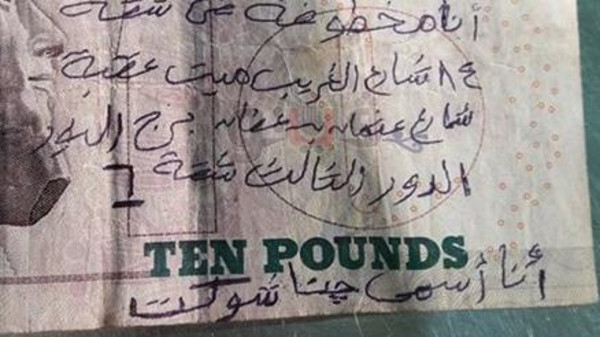 أنا مخطوفة في شقة
٤٨ شارع الغريب ميت عقبة
شارع عثمان بن عفان برج النور
الدور الثالث شقة ٦
TEN POUNDS
أنا أسمى شوكت